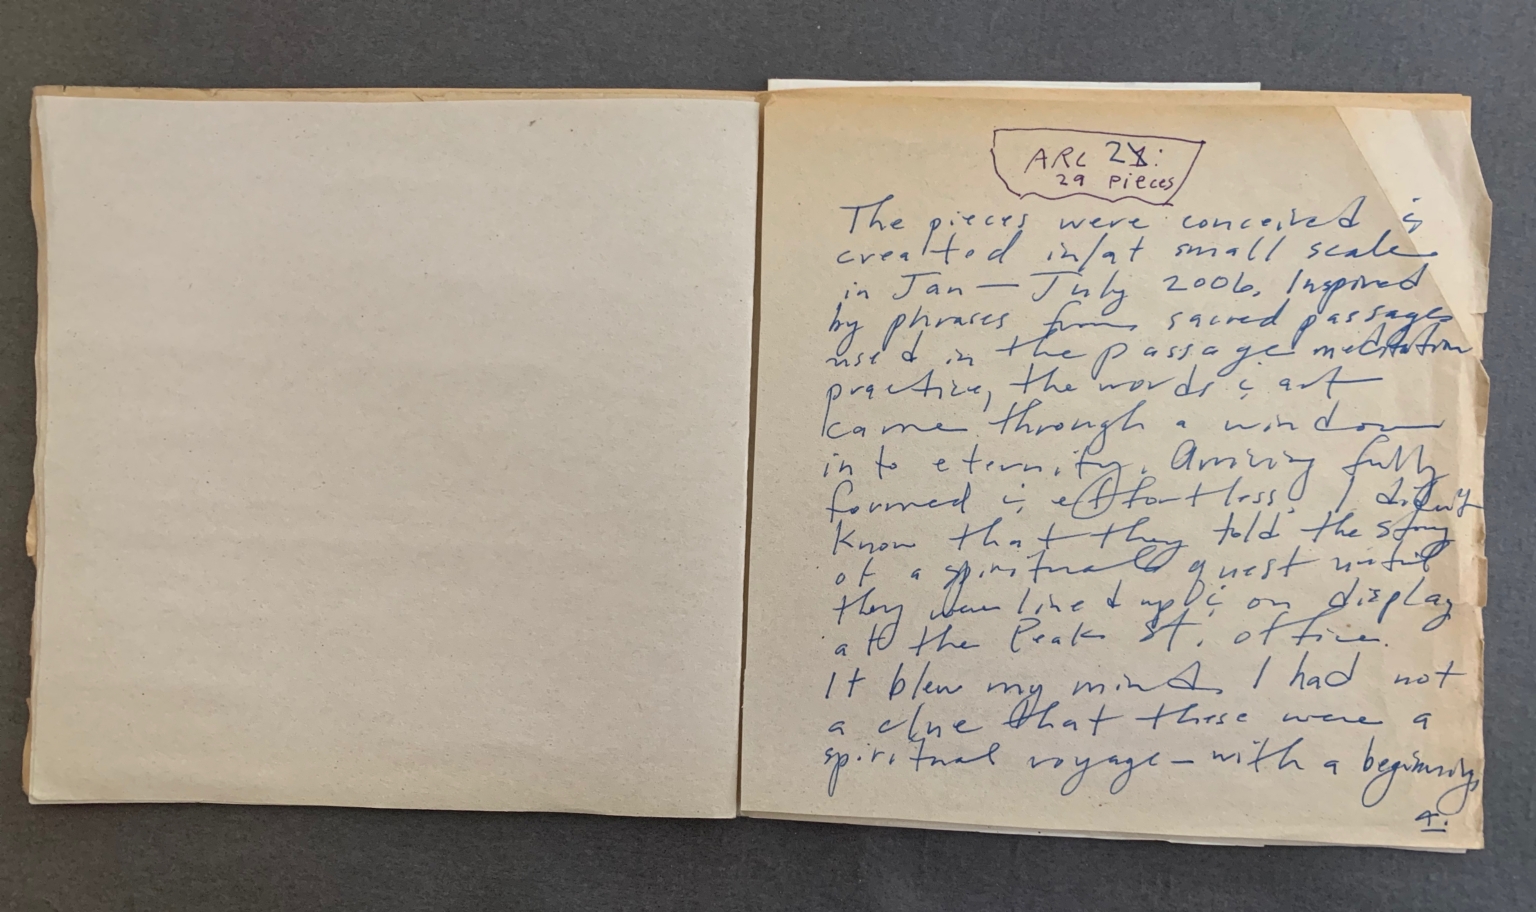 ARC 2
29 pieces
The pieces were conceived &
created in/at small scale
in Jan — July 2006. Inspired
by phrases from sacred passages
used in the passage meditation
practice, the words & art
came through a window
into eternity. Arriving fully
formed & effortless, I didn't
know that they told the story
of a spiritual quest until
they were lined up & on display
at the Peak St. office.
It blew my mind. I had not
a clue that these were a
spiritual voyage — with a beginning,
4.